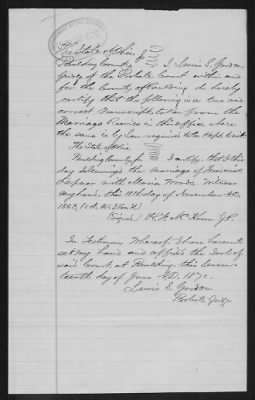 The State of Ohio
Paulding County ss I, Lewis E. Gordon
Judge of the Probate Court within and
for the County of Paulding do hereby
certify that the following is a true and
correct transcript taken from the
Marriage Records in this office where
the same is by law required to be kept to wit
The State of Ohio
Paulding County ss I certify, that I this
day solemnized the marriage of
with Maria Witness
my hand, this day of November A.D.
186
(Signed) J.P.
In Testimony Whereof I have hereunto
set my hand and affixed the Seal of
said Court at Paulding, this
day of June A.D. 187
Lewis E. Gordon
Probate Judge